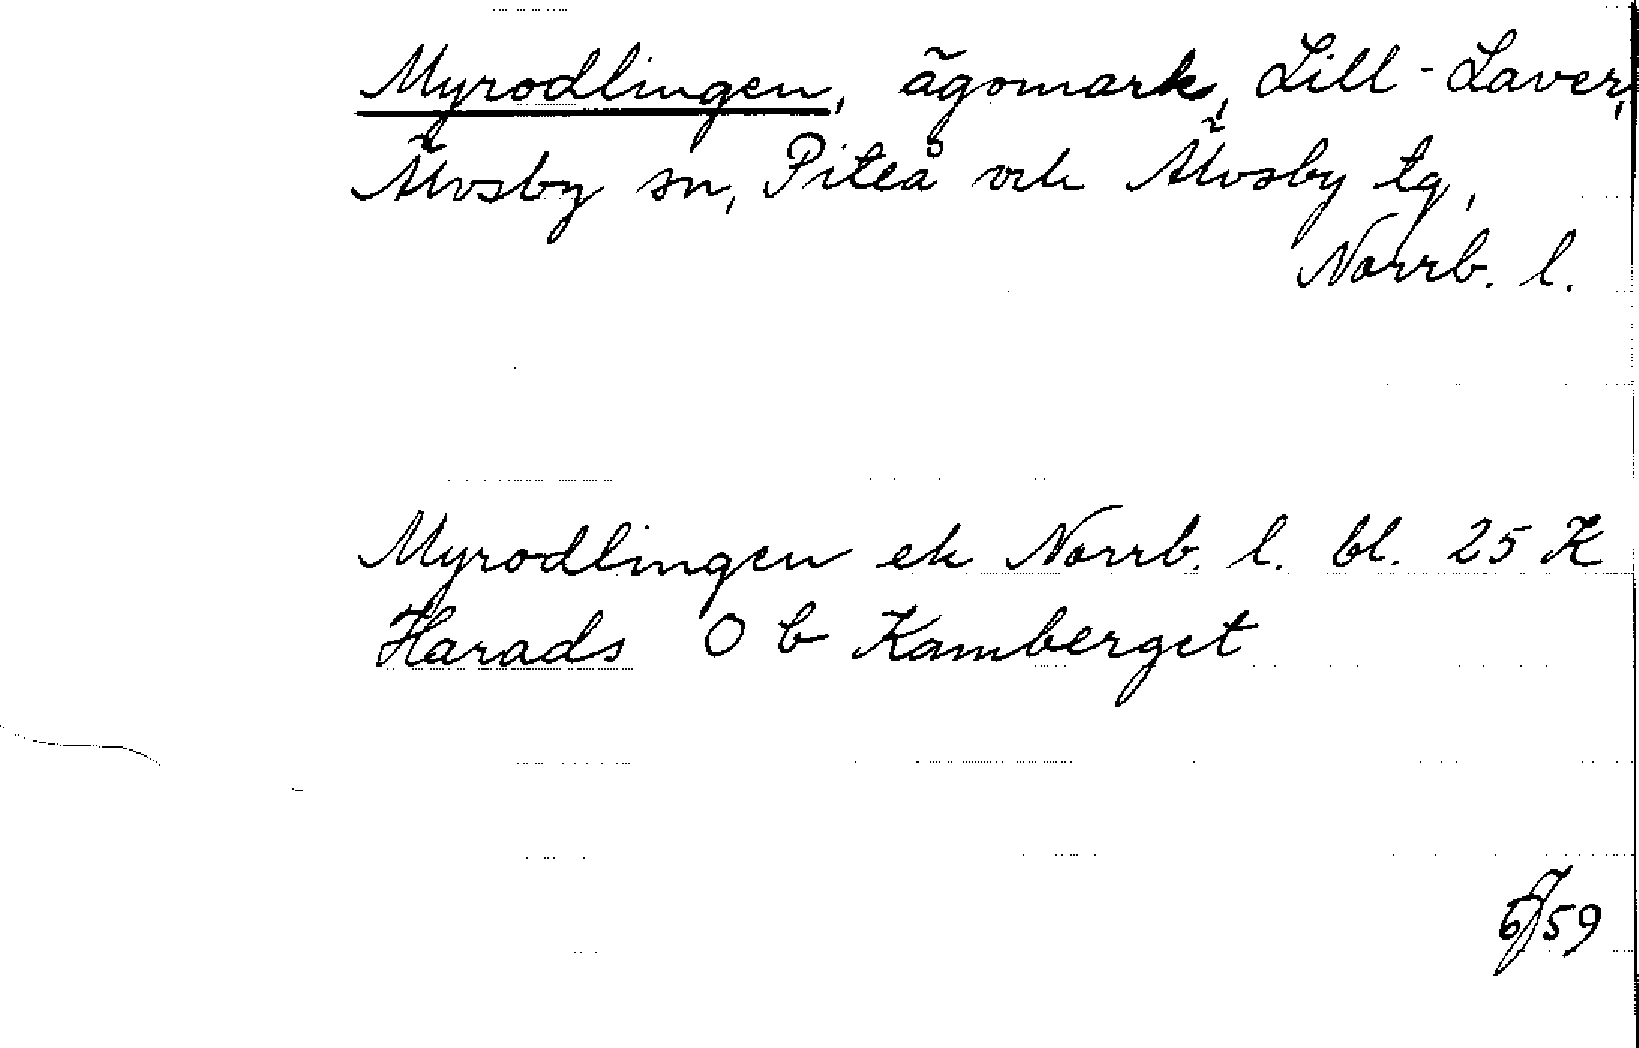 Myrodlingen, ägomark, Lill-Laver,
Älvsby sn, Piteå och Älvsby tg,
Norrb. l.
Myrodlingen ek Norrb. l. bl. 25 K
Harads O b Kamberget
/59